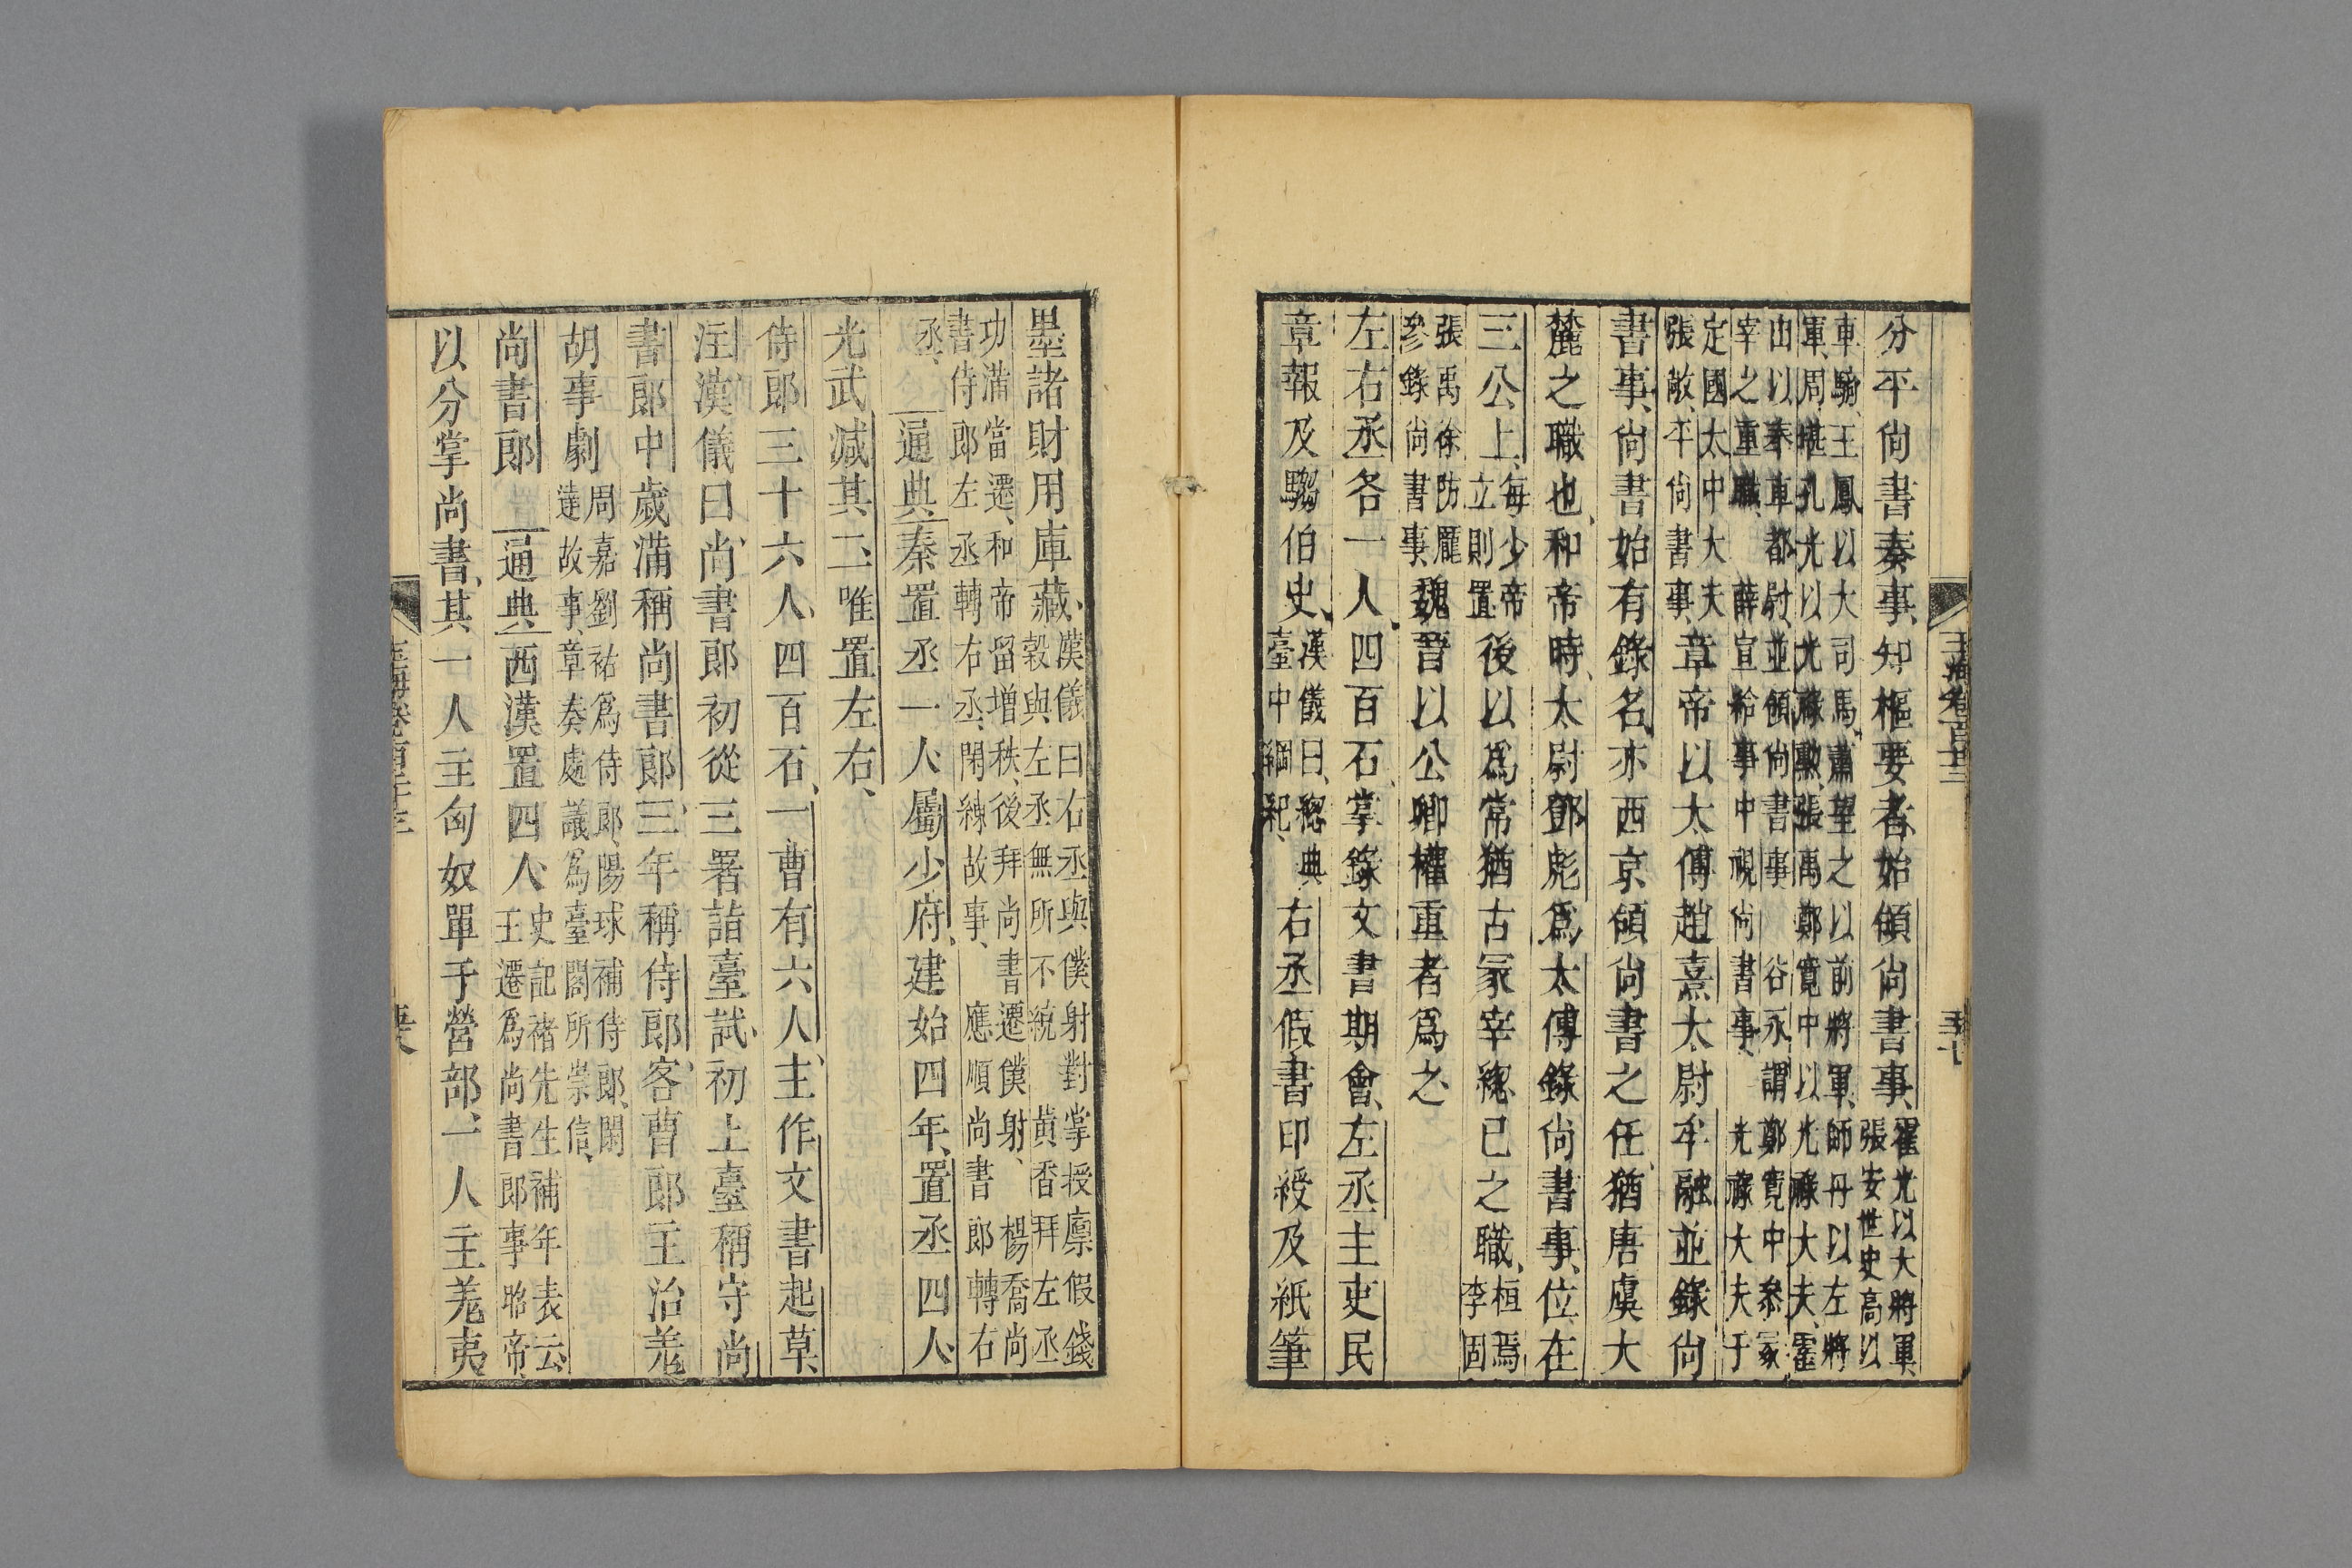 分平尚書奏事知樞要者始領尚書事霍光以大將軍張安世史高以
車騎王鳳以大司馬蕭望之以前將軍師丹以左將軍周堪孔光以光祿勳張禹鄭寬中以光祿大夫霍
山以奉車都尉並領尚書事谷永謂鄭寬中參冢宰之重職薛宣給事中視尚書事光祿大夫于
定國太中大夫張敞平尚書事章帝以太傅趙熹太尉牟融並錄尚
書事尚書始有錄名亦西京領尚書之任猶唐虞大
麓之職也和帝時太尉鄧彪爲太傅錄尚書事位在
三公上每少帝立則置後以爲常猶古冢宰緫已之職桓焉李固
張禹徐防龐參錄尚書事魏晉以公卿權重者爲之
左右丞各一人四百石掌錄文書期會左丞主吏民
章報及騶伯史漢儀曰緫典臺中綱紀右丞假書印綬及紙筆
墨諸財用庫藏漢儀曰右丞與僕射對掌授廪假錢穀與左丞無所不統黃香拜左丞
功滿當遷和帝留增秩後拜尚書遷僕射楊喬尚書侍郎左丞轉右丞閑練故事應順尚書郎轉右
丞通典秦置丞一人屬少府建始四年置丞四人
光武减其二唯置左右
侍郎三十六人四百石一曹有六人主作文書起草
注漢儀曰尚書郎初從三署詣臺試初上臺稱守尚
書郎中歲滿稱尚書郎三年稱侍郎客曹郎主治羌
胡事劇周嘉劉祐爲侍郎陽球補侍郎閑達故事章奏處議爲臺閣所崇信
尚書郎通典西漢置四人史記褚先生補年表云王遷爲尚書郎事昭帝
以分掌尚書其一人主匈奴單于營部一人主羌夷